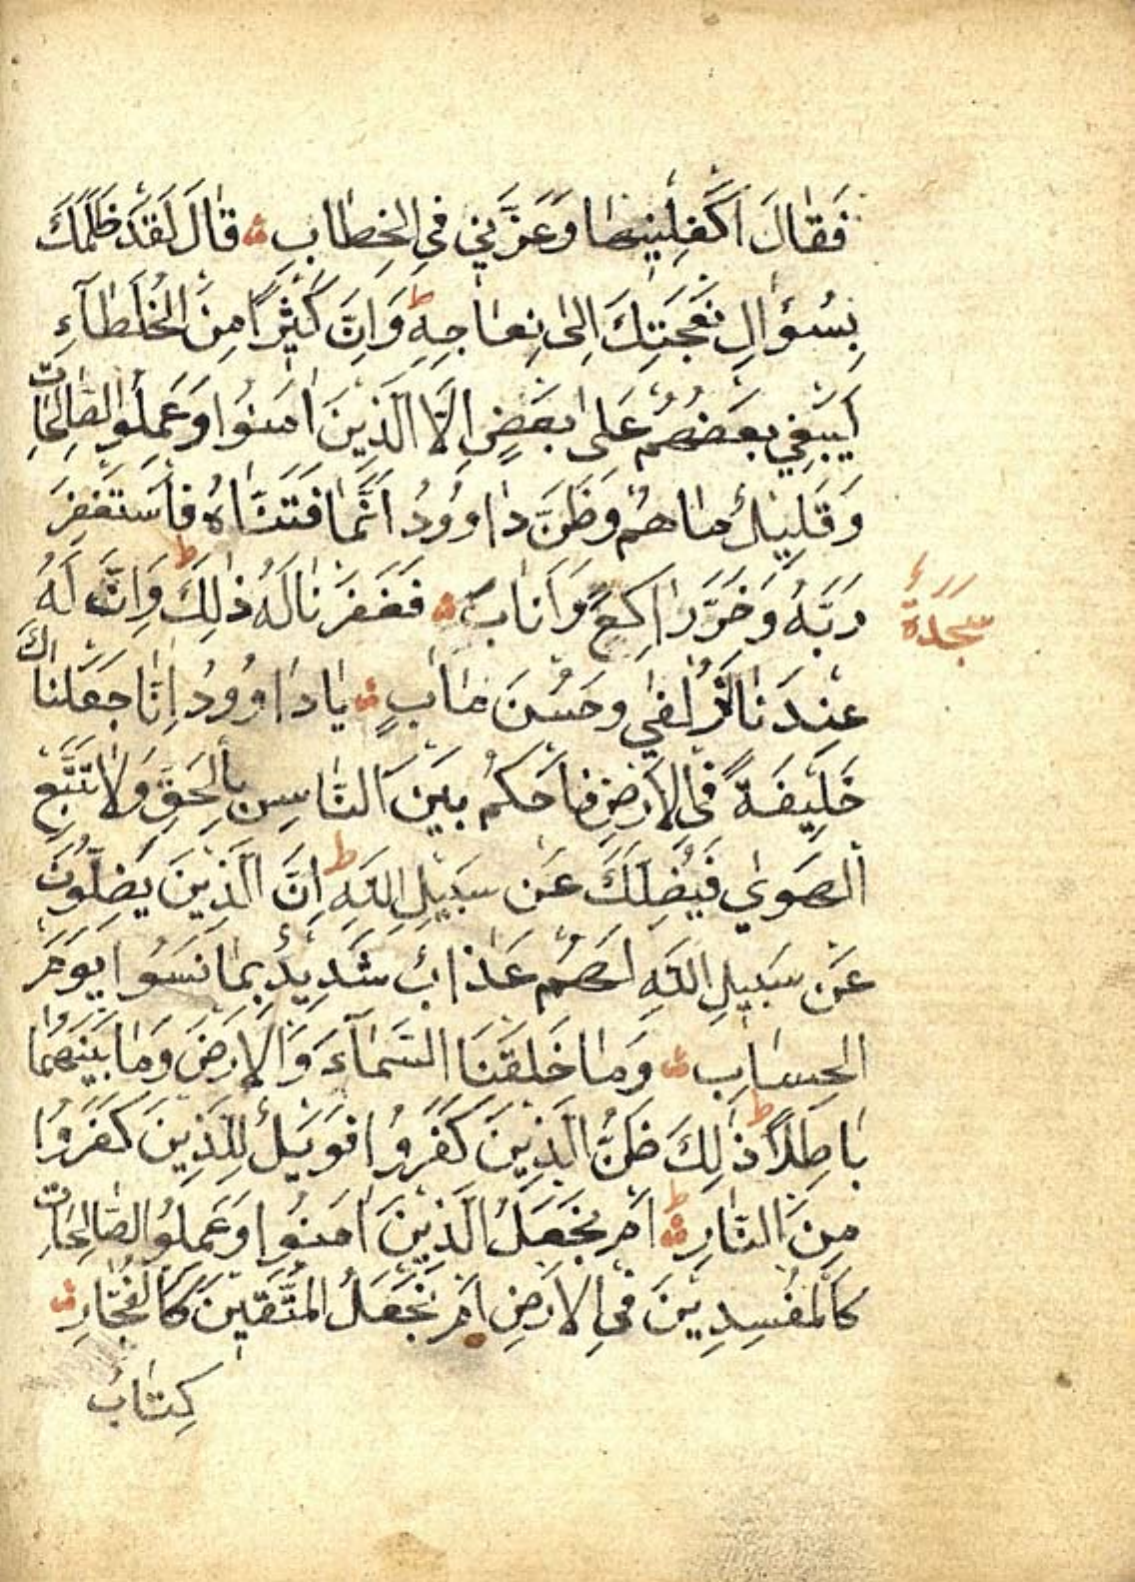 فَقَالَ اَكْفِلْنِيهَا وَعَزَّنِي فِي الْخِطَابِ قَالَ لَقَدْ ظَلَمَكَ
بِسُؤَالِ نَعْجَتِكَ اِلٰى نِعَاجِهِ ط وَاِنَّ كَثِيْرًا مِنَ الْخُلَطَآءِ
لَيَبْغِي بَعْضُهُمْ عَلٰى بَعْضٍ اِلَّا الَّذِيْنَ اٰمَنُوا وَعَمِلُوا الصَّالِحَاتِ
وَقَلِيْلٌ مَاهُمْ وَظَنَّ دَاوُودُ اَنَّمَا فَتَنَّاهُ فَاسْتَغْفَرَ
رَبَّهُ وَخَرَّ رَاكِعًا وَاَنَابَ فَغَفَرْنَا لَهُ ذٰلِكَ ط وَاِنَّ لَهُ
سَجْدَةٌ
عِنْدَنَا لَزُلْفٰي وَحُسْنَ مَاٰبٍ يَا دَاوُودُ اِنَّا جَعَلْنَاكَ
خَلِيْفَةً فِي الْاَرْضِ فَاحْكُمْ بَيْنَ النَّاسِ بِالْحَقِّ وَلَا تَتَّبِعِ
الْهَوٰي فَيُضِلَّكَ عَنْ سَبِيْلِ اللّٰهِ ط اِنَّ الَّذِيْنَ يَضِلُّونَ
عَنْ سَبِيْلِ اللّٰهِ لَهُمْ عَذَابٌ شَدِيْدٌ بِمَا نَسُوا يَوْمَ
الْحِسَابِ وَمَا خَلَقْنَا السَّمَآءَ وَالْاَرْضَ وَمَا بَيْنَهُمَا
بَاطِلًا ط ذٰلِكَ ظَنُّ الَّذِيْنَ كَفَرُوا فَوَيْلٌ لِلَّذِيْنَ كَفَرُوا
مِنَ النَّارِ ط اَمْ نَجْعَلُ الَّذِيْنَ اٰمَنُوا وَعَمِلُوا الصَّالِحَاتِ
كَالْمُفْسِدِيْنَ فِي الْاَرْضِ اَمْ نَجْعَلُ الْمُتَّقِيْنَ كَالْفُجَّارِ
كِتَابٌ